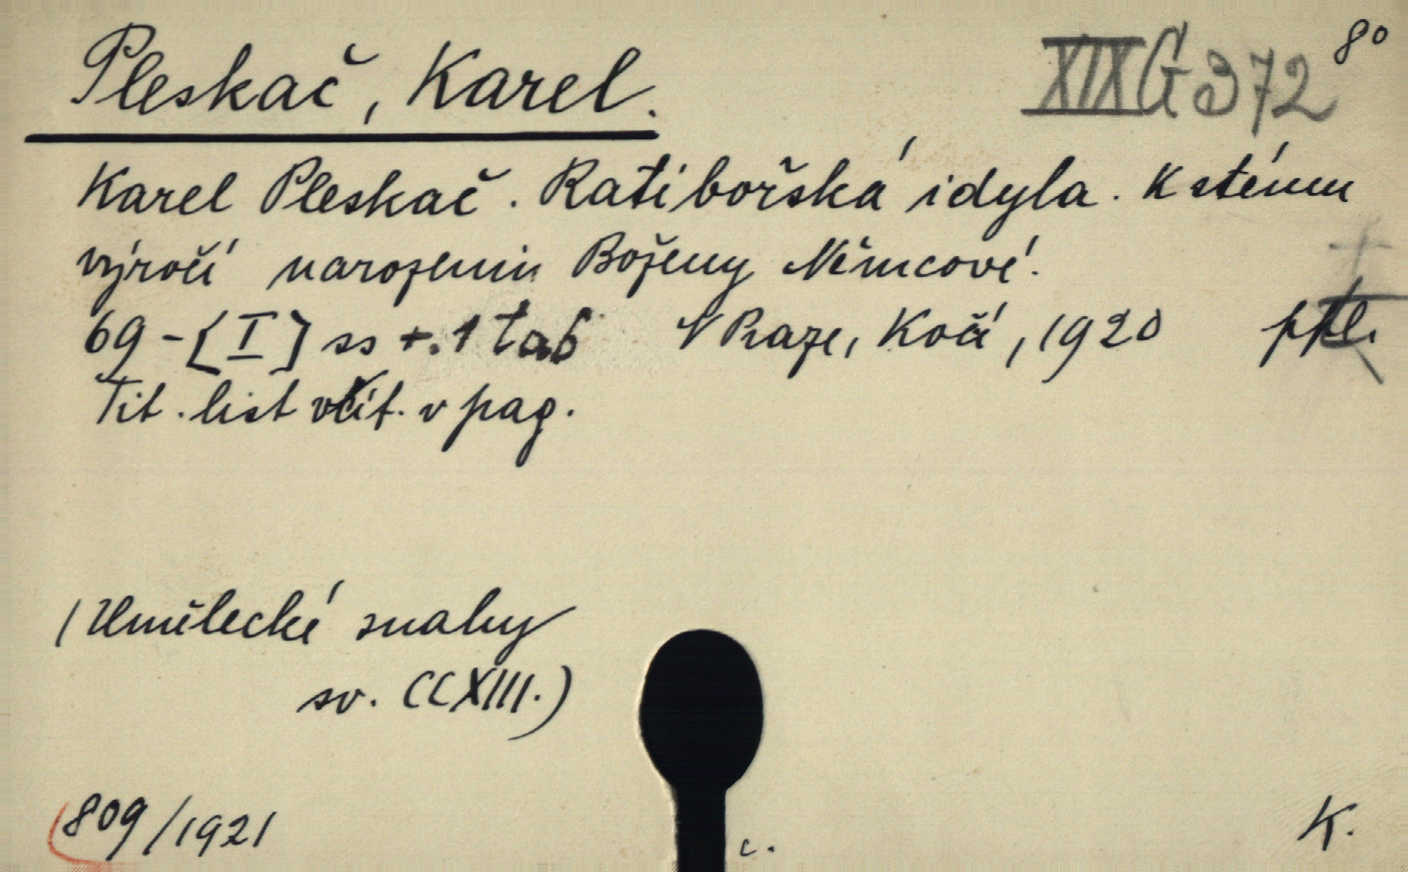 Pleskač, Karel. XIX G 372 8°
Karel Pleskač. Ratibořská idyla. K stému
výročí narozenin Boženy Němcové.
69-[I] ss +. 1 tab V Praze, Kočí, 1920 ppl.
Tit. list včít. v pag.
(Umělecké snahy
sv. CCXIII.)
809/1921
c. K.